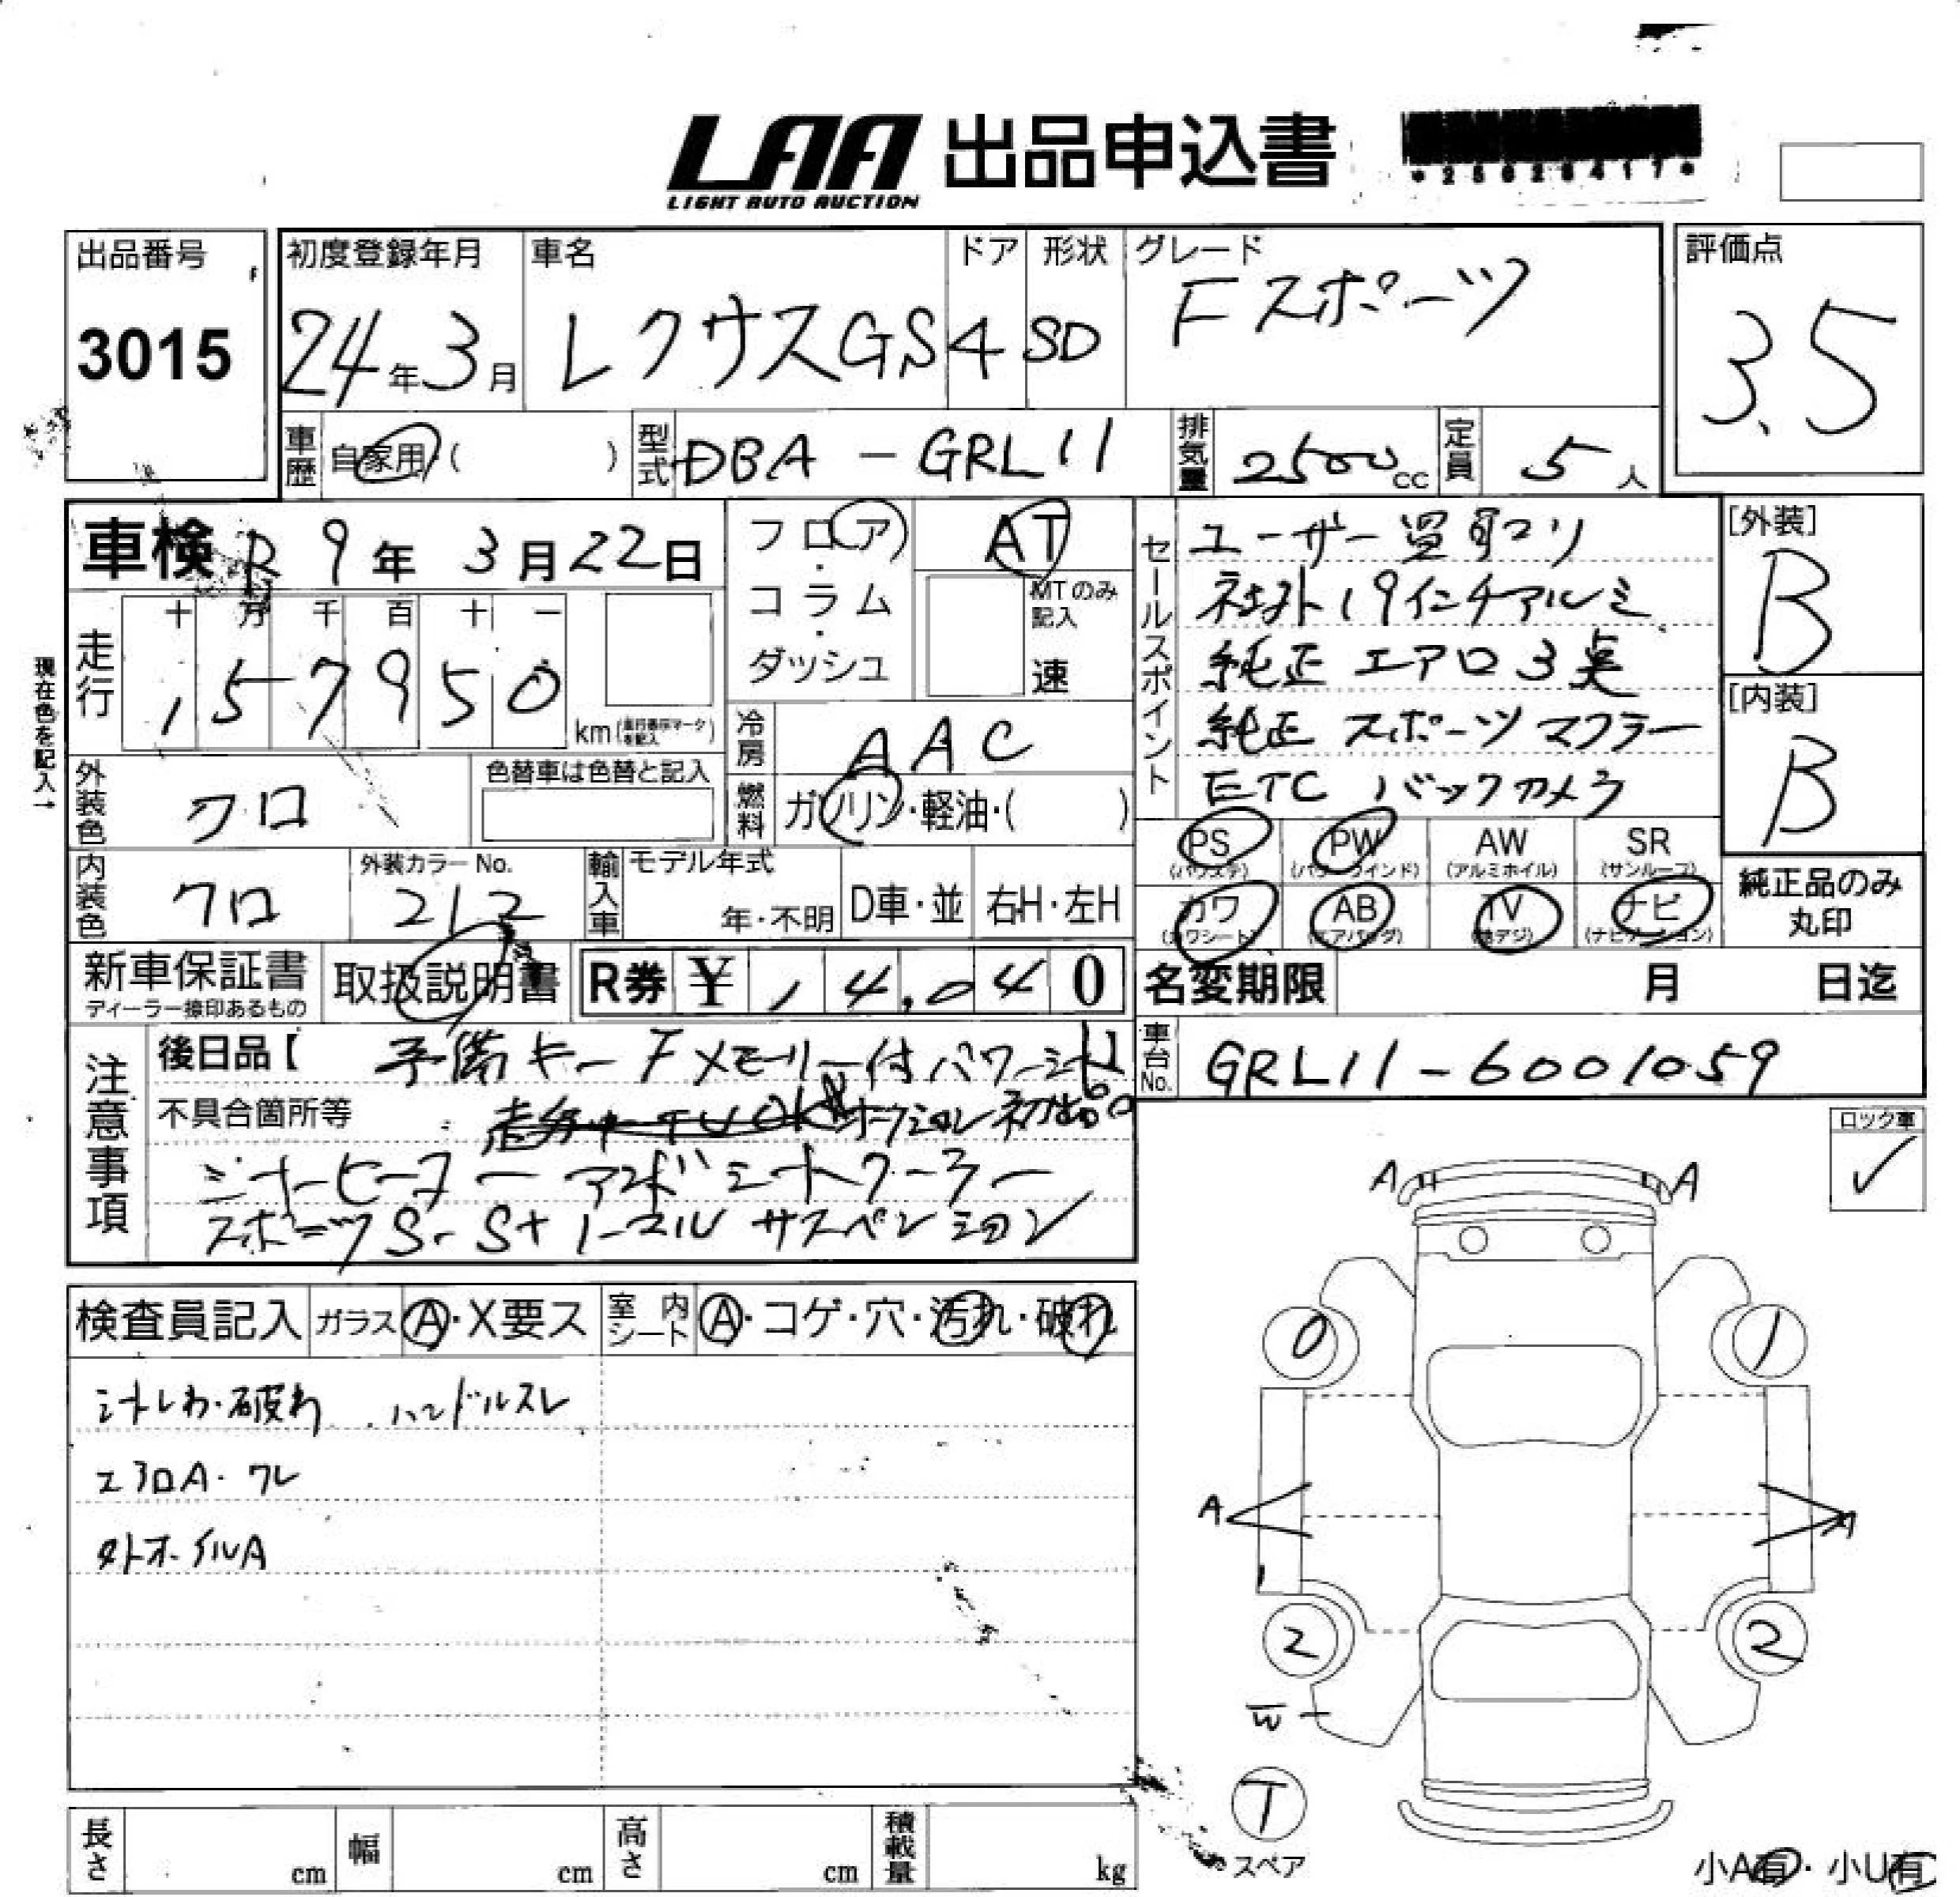 LAA 出品申込書
LIGHT AUTO AUCTION
*25028417*
出品番号
3015
初度登録年月
24年3月
車名
レクサスGS
ドア
4
形状
SD
グレード
Fスポーツ
評価点
3.5
車歴
自家用 ( )
型式
DBA-GRL11
排気量
2500cc
定員
5人
車検 R9年3月22日
フロア・コラム・ダッシュ
AT
MTのみ記入
速
セールスポイント
ユーザー買取マリ
社外19インチアルミ
純正 エアロ3点
純正 スポーツマフラー
ETC バックカメラ
[外装]
B
[内装]
B
現在色を記入→
走行
十 万 千 百 十 一
157950
km
冷房
AAC
外装色
クロ
色替車は色替と記入
燃料
ガソリン・軽油・( )
PS
(パワステ)
PW
(パワーウインド)
AW
(アルミホイル)
SR
(サンルーフ)
内装色
クロ
外装カラーNo.
212
輸入車
モデル年式
年・不明
D車・並
右H・左H
カワ
(カワシート)
AB
(エアバッグ)
TV
(地デジ)
ナビ
(ナビゲーション)
純正品のみ
丸印
新車保証書
ディーラー捺印あるもの
取扱説明書
R券 ¥ 14,040
名変期限 月 日迄
注意事項
後日品【 予備キー メモリー付パワーシート
不具合箇所等
オークション初出品
シートヒーター アンド シートクーラー
スポーツS・S+ ノーマル サスペンション
車台No.
GRL11-6001059
ロック車
✓
A A
検査員記入
ガラス A・X要ス
室内シート A・コゲ・穴・汚れ・破れ
シートしわ・破れ ハンドルスレ
エアロA・ワレ
外ホイルA
0 1
A A
2 2
W
T
スペア
長さ cm
幅 cm
高さ cm
積載量 kg
小A有・小U有